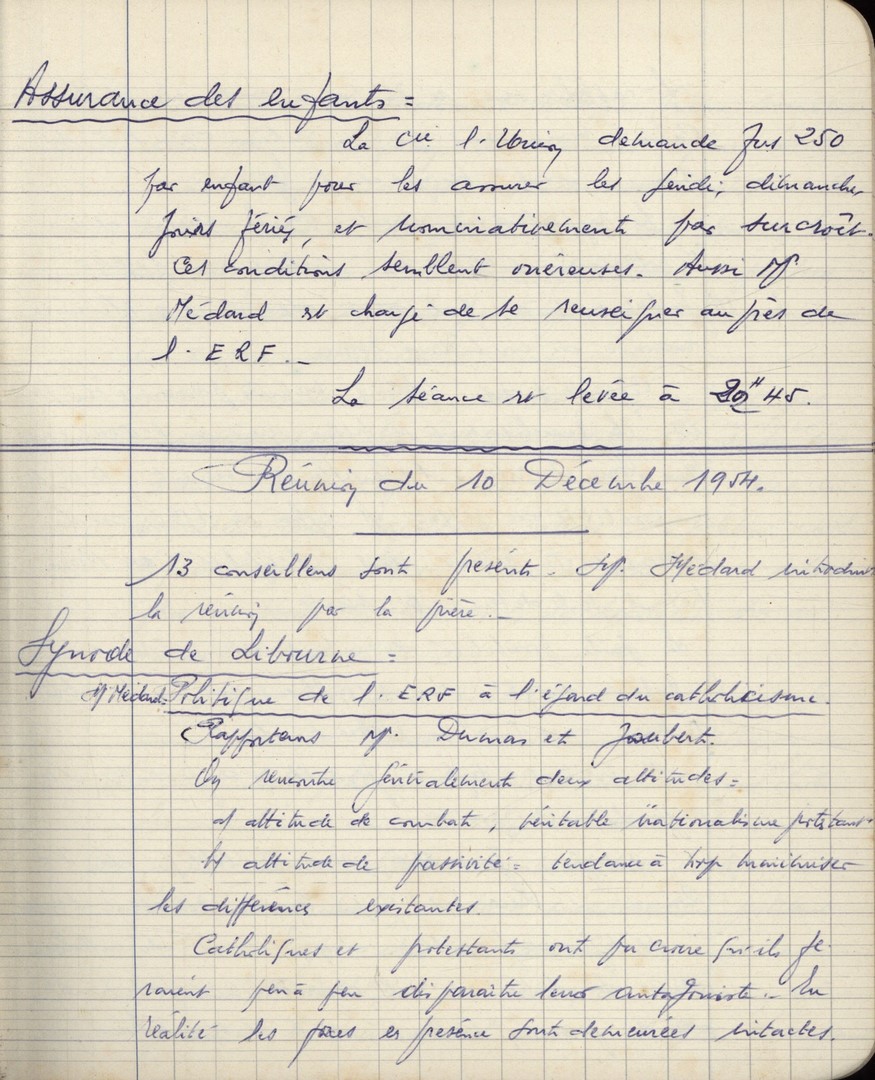 Assurance des enfants =
La Cie l'Union demande frs 250
par enfant pour les assurer les jeudis, dimanches
jours fériés, et nominativement par surcroît.
Ces conditions semblent onéreuses. Aussi Mr
Médard est chargé de se renseigner auprès de
l'ERF._
La séance est levée à 20H45.
Réunion du 10 Décembre 1954.
13 conseillers sont présents. Mr. Médard introduit
la réunion par la prière._
Synode de Libourne =
Mr Médard = Politique de l'ERF à l'égard du catholicisme.
Rapporteurs Mr. Dumas et Joubert.
On rencontre généralement deux attitudes =
a/ attitude de combat, véritable nationalisme protestant
b/ attitude de passivité = tendance à trop minimiser
les différences existantes.
Catholiques et protestants ont pu croire qu'ils fe-
raient peu à peu disparaître leur antagoniste._ En
réalité les forces en présence sont demeurées intactes.